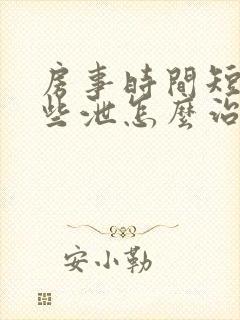 房事時間短
些泄怎麼治
安小勒